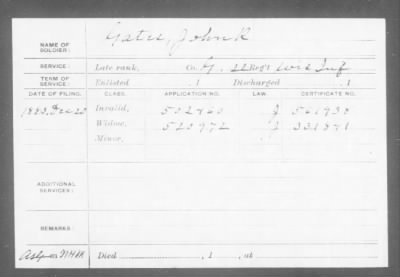 Gates, John R
NAME OF
SOLDIER:
SERVICE: Late rank, Co. G, 22 Reg't Wis Inf
TERM OF
SERVICE: Enlisted , 1 Discharged , 1
DATE OF FILING. CLASS. APPLICATION NO. LAW. CERTIFICATE NO.
1883, Dec 20 Invalid,
Widow, 520972
Minor,
ADDITIONAL
SERVICES:
REMARKS:
Died , 1 , at